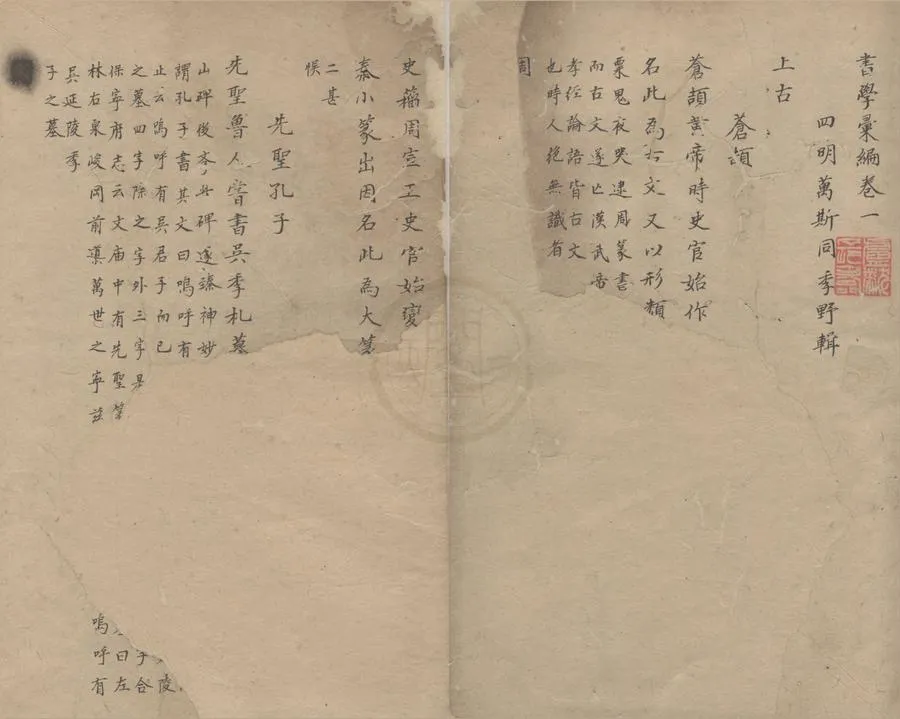 書學彙編卷一
四明萬斯同季野輯
上古
蒼頡
蒼頡黃帝時史官始作
名此為古文又以形類
粟鬼夜哭逮周篆書
而古文遂亡漢武帝
孝經論語皆古文
也時人絕無識者
周
史籀周宣王史官始變
秦小篆出因名此為大篆
二甚
悞
先聖孔子
先聖魯人嘗書吳季札墓
山碑後本此碑遂臻神妙
謂孔子書其文曰嗚呼有
止云嗚呼有吳君子而已
之墓四字除之字外三字是
保寧府志云文庙中有先聖筆
林右泉峻同前選萬世之寧茲
吳延陵季
子之墓
陵
子合
曰左
嗚呼有